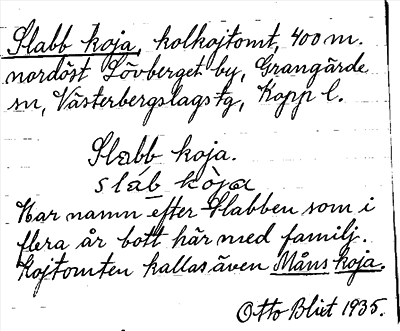 Slabb koja, kolkojtomt, 400 m.
nordöst Lövberget by, Grangärde
sn, Västerbergslags tg, Kopp l.
Slabb koja.
slàb kòja
Har namn efter Slabben som i
flera år bott här med familj.
Kojtomten kallas även Måns koja.
Otto Blixt 1935.